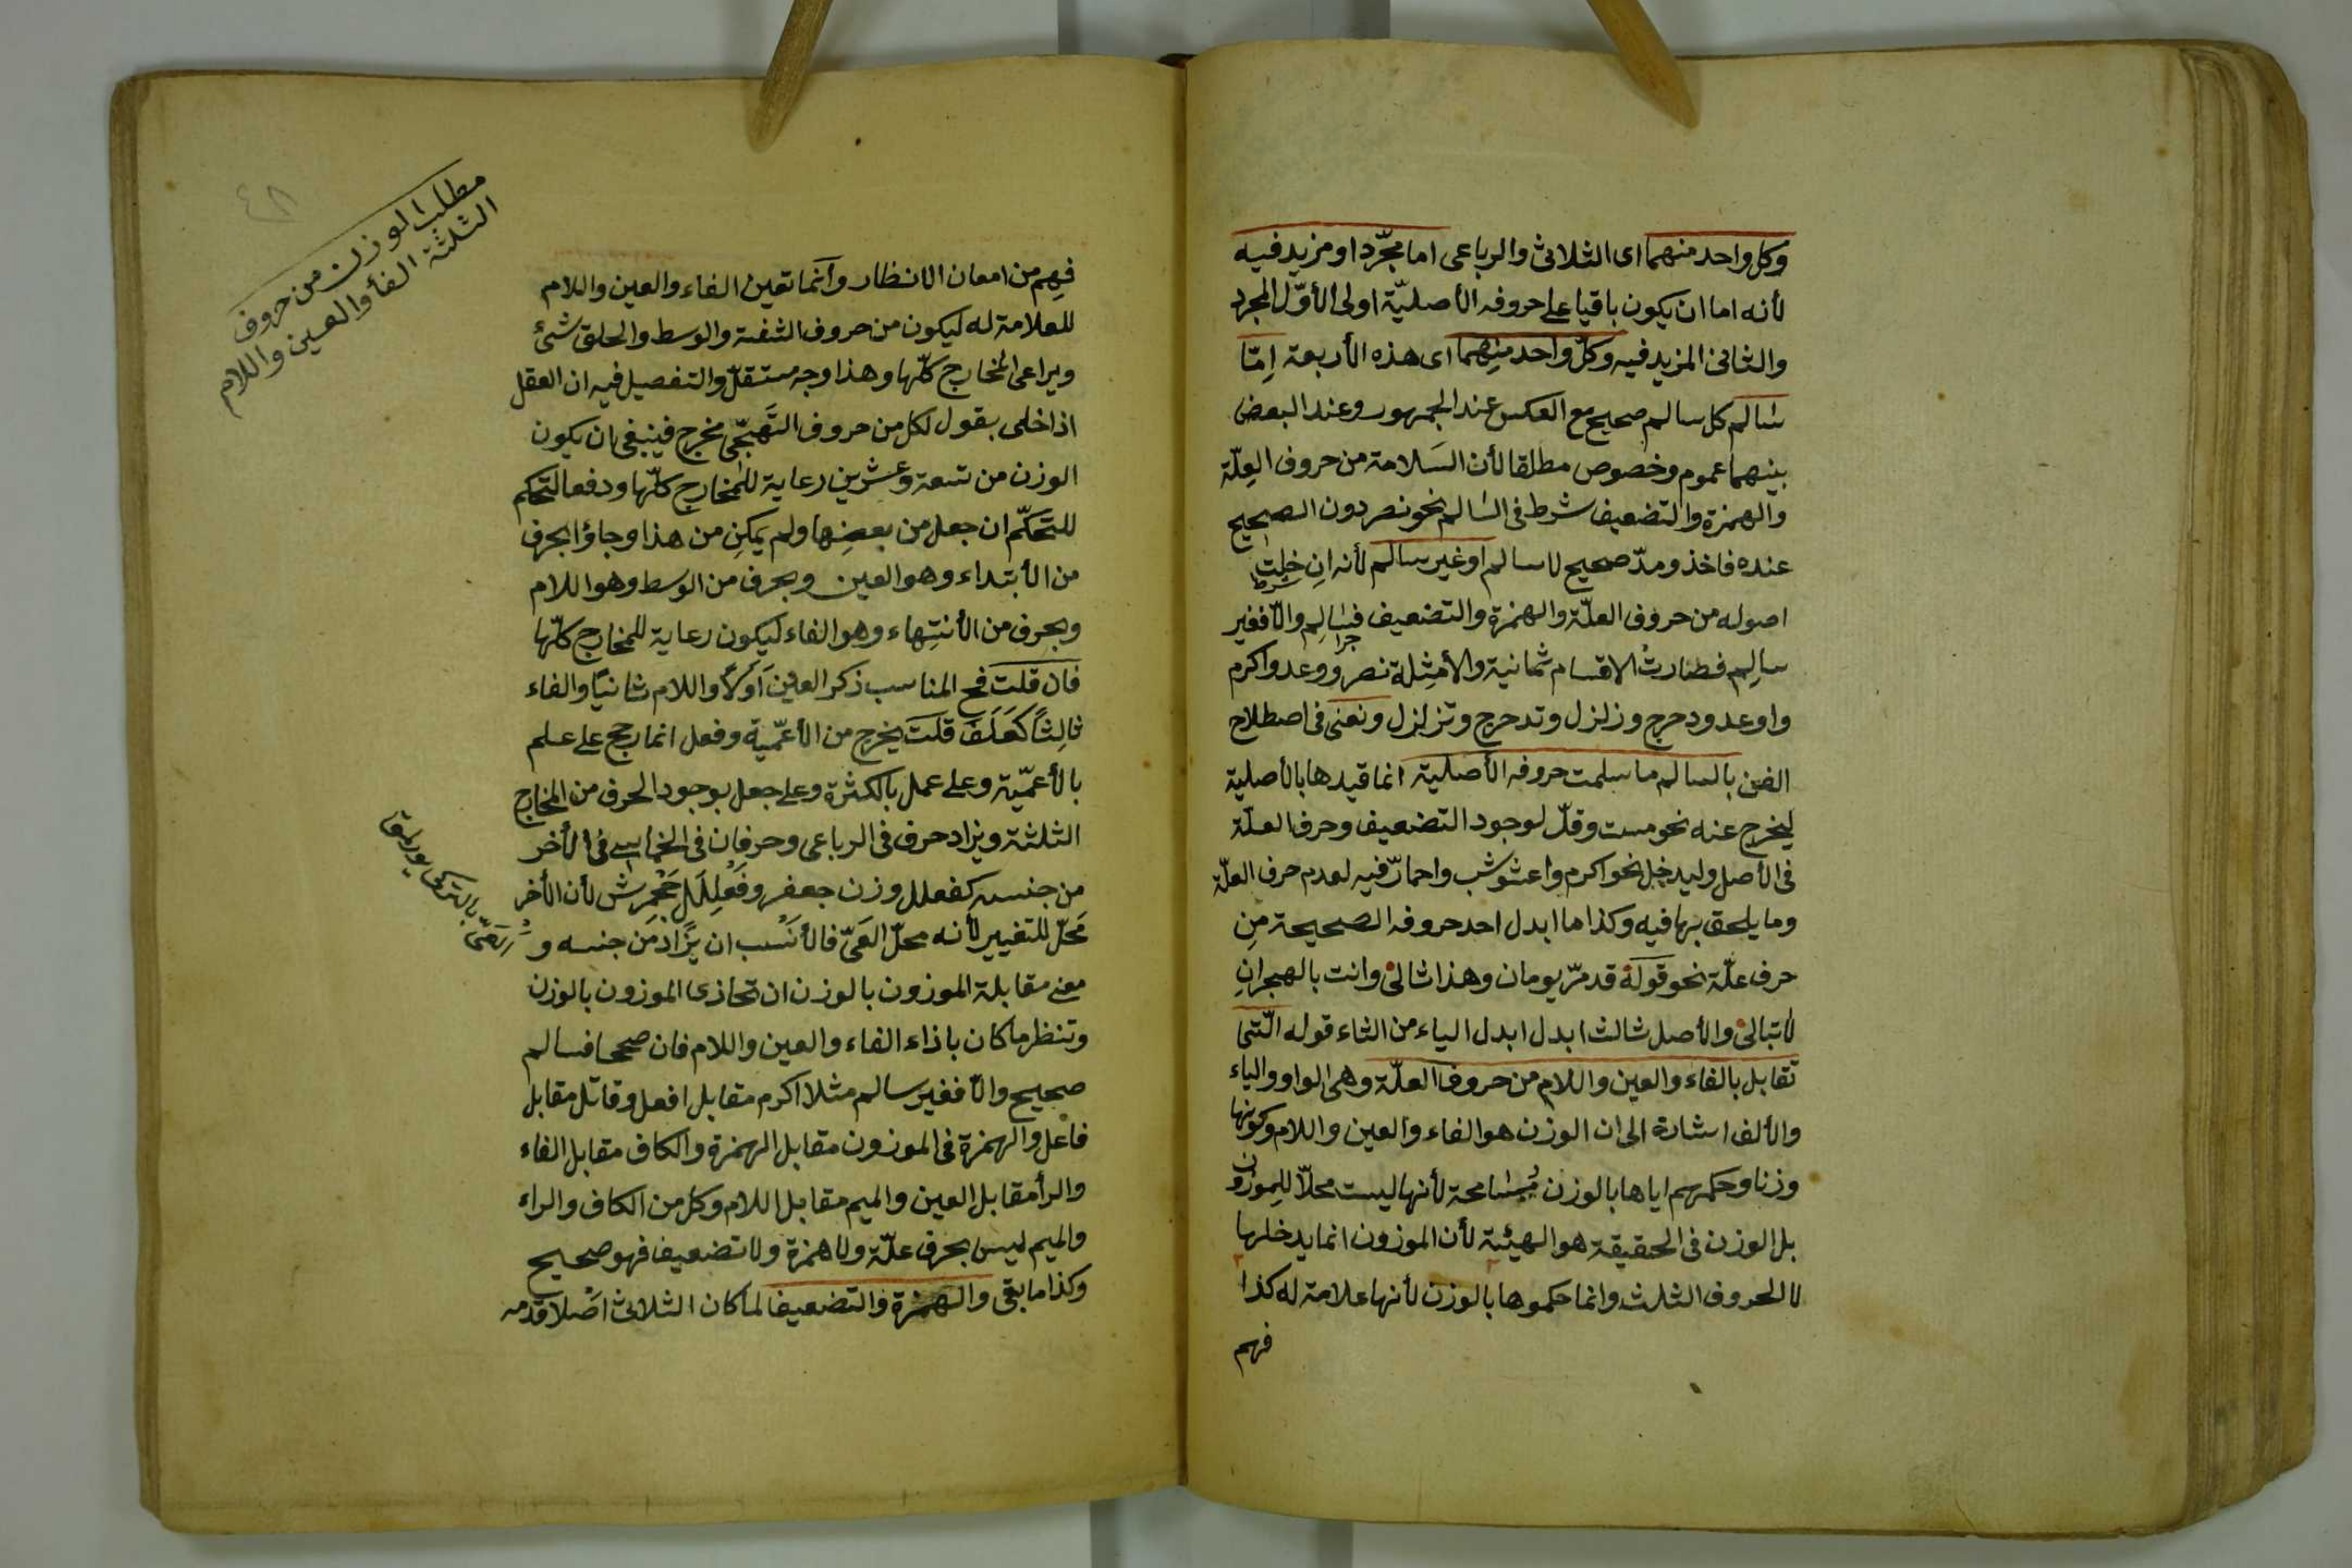 وكل واحد منهما اى الثلاثى والرباعى اما مجرّد او مزيد فيه
لأنه اما ان يكون باقيا على حروفه الأصليّة اولى الأوّل المجرد
والثانى المزيد فيه وكلّ واحد منهما اى هذه الأربعة اِمّا
سالم كل سالم صحيح مع العكس عند الجمهور وعند البعض
بينهما عموم وخصوص مطلقا لأن السَلامة من حروف العِلّة
والهمزة والتضعيف شرط فى السالم نحو نصر دون الصحيح
عنده فاخذ ومدّ صحيح لا سالم او غير سالم لأنه اِن خلت
شرط
اصوله من حروف العلّة والهمزة والتضعيف فسالم والّا فغير
جزا
سالم فصارت الاقسام ثمانية والأمثِلة نصر ووعد واكرم
واوعد ودحرج وزلزل وتدحرج وتزلزل ونعنى فى اصطلاح
الفن بالسالم ما سلمت حروفه الأصلية انما قيدها بالأصلية
ليخرج عنه نحو مست وقلّ لوجود التضعيف وحرف العلّة
فى الأصل وليدخل نحو اكرم واعشوشب واحمارّ فيه لعدم حرف العلّة
وما يلحق بها فيه وكذا ما ابدل احد حروفه الصحيحة مِن
حرف علّة نحو قوله قد مرّ يومان وهذا ثالى وانت بالهجرانِ
لا تبالى والأصل ثالث ابدل ابدل الياء من الثاء قوله الّتى
تقابل بالفاء والعين واللام من حروف العلّة وهى الواو والياء
والألف اشارة الى ان الوزن هو الفاء والعين واللام وكونها
وزنا وحكمهم اياها بالوزن مُسَامحة لأنها ليست محلّا للموزون
بل الوزن فى الحقيقة هو الهيئة لأن الموزون انما يدخلها
لا الحروف الثلث وانما حكموها بالوزن لأنها علامة له كذا
فهم
مطلب الوزن من حروف
الثلثة الفأ والعين واللام
٤٨
فهم من امعان الانظار وانما تعين الفاء والعين واللام
للعلامة له ليكون من حروف الشفة والوسط والحلق شئ
ويراعى المخارج كلّها وهذا وجه مستقلّ والتفصيل فيه ان العقل
اذا خلى بقول لكل من حروف التَهَجّى مخرج فينبغى ان يكون
الوزن من تسعة وعشرين رعاية للمخارج كلّها ودفعا لتحكم
للتحكّم ان جعل من بعضها ولم يمكن من هذا وجاؤا بحرف
من الأبتداء وهو العين وبحرف من الوسط وهو اللام
وبحرف من الأنتهاء وهو الفاء ليكون رعاية للمخارج كلّها
فان قلت فح المناسب ذكر العين اَوّلًا واللام ثانيًا والفاء
ثالثًا كعَلَفَ قلت يخرج من الأعمّية وفعل انما رجح على علم
بالأعمّيّة وعلى عمل بالكثرة وعلى جعل بوجود الحرف من المخارج
الثلثة ويزاد حرف فى الرباعى وحرفان فى الخماسى فى الأخر
من جنسه كفعلل وزن جعفر وفَعْلِلَل جَحْمَرِش لأن الأخر
مَحَلّ للتغيير لأنه محلّ العَىّ فالأنسب ان يُزَاد من جنسه و
معنى مقابلة الموزون بالوزن ان تحاذى الموزون بالوزن
وتنظر ما كان باذاء الفاء والعين واللام فان صححا فسالم
صحيح والّا فغير سالم مثلا اكرم مقابل افعل وقاتل مقابل
فاعل والهمزة فى الموزون مقابل الهمزة والكاف مقابل الفاء
والرأ مقابل العين والميم مقابل اللام وكل من الكاف والراء
والميم ليس بحرف علّة ولا همزة ولا تضعيف فهو صحيح
وكذا ما بقى والهمزة والتضعيف لما كان الثلاثى اصلا قدمه